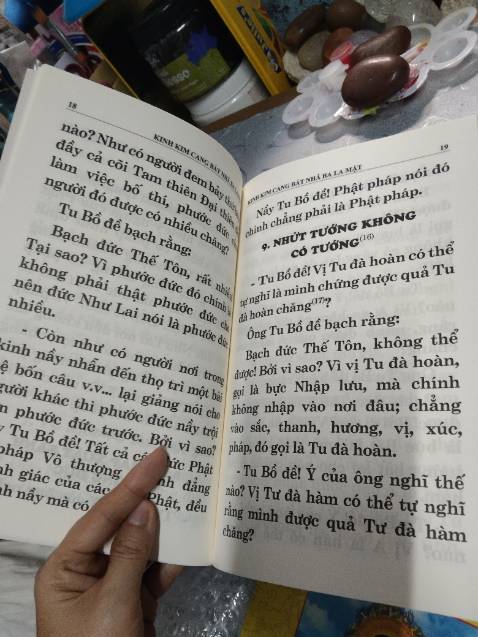 18
KINH KIM CANG BÁT NHÃ
nào? Như có người đem bảy th
đầy cả cõi Tam thiên Đại thiên
làm việc bố thí, phước đức
người đó được có nhiều chăng?
Tu Bồ đề bạch rằng:
Bạch đức Thế Tôn, rất nhiều
Tại sao? Vì phước đức đó chính
không phải thật phước đức
nên đức Như Lai nói là phước đức
nhiều.
- Còn như có người nơi trong
kinh nầy nhẫn đến thọ trì một bài
bốn câu v.v... lại giảng nói cho
người khác thì phước đức nầy trội
phước đức trước. Bởi vì sao?
Tu Bồ đề! Tất cả các đức Phật
pháp Vô thượng đẳng
giác của các Phật, đều
nầy mà có
19
KINH KIM CANG BÁT NHÃ BA LA MẬT
Nầy Tu Bồ đề! Phật pháp nói đó
chính chẳng phải là Phật pháp.
9. NHỨT TƯỚNG KHÔNG
CÓ TƯỚNG(16)
- Tu Bồ đề! Vị Tu đà hoàn có thể
tự nghĩ là mình chứng được quả Tu
đà hoàn chăng(17)?
Ông Tu Bồ đề bạch rằng:
Bạch đức Thế Tôn, không thể
được! Bởi vì sao? Vì vị Tu đà hoàn,
gọi là bực Nhập lưu, mà chính
không nhập vào nơi đâu; chẳng
vào sắc, thanh, hương, vị, xúc,
pháp, đó gọi là Tu đà hoàn.
- Tu Bồ đề! Ý của ông nghĩ thế
nào? Vị Tư đà hàm có thể tự nghĩ
rằng mình được quả Tư đà hàm
chăng?